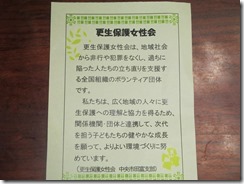 更生保護女性会
更生保護女性会は、地域社会
から非行や犯罪をなくし、過ちに
陥った人たちの立ち直りを支援す
る全国組織のボランティア団体
です。
私たちは、広く地域の人々に更
生保護への理解と協力を得るため、
関係機関・団体と連携して、次代
を担う子どもたちの健やかな成長
を願って、よりよい環境づくりに
努めています。
「更生保護女性会 中央市田富支部」